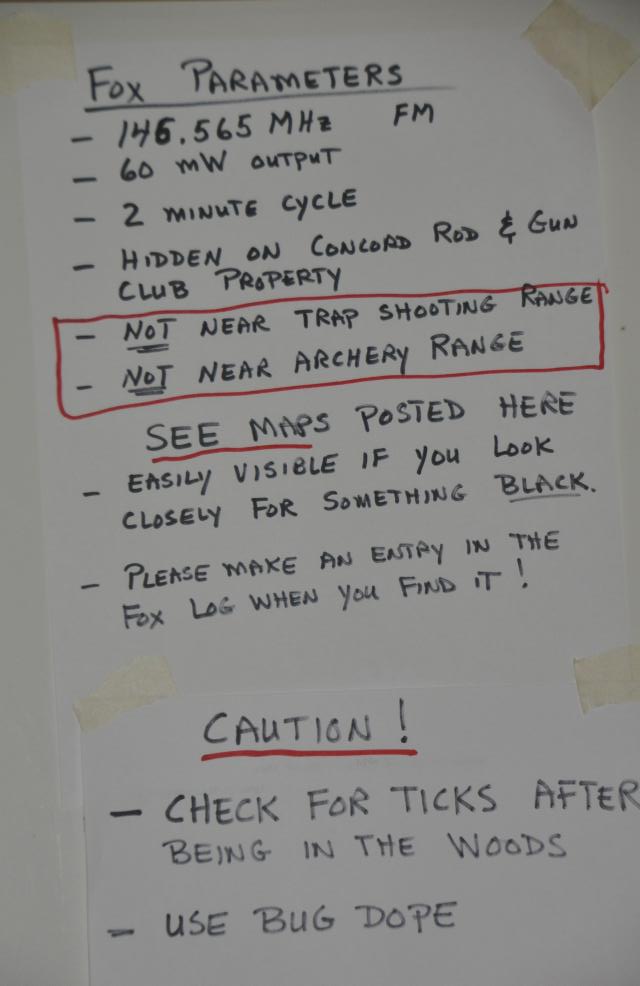 FOX PARAMETERS
- 146.565 MHz FM
- 60 mW OUTPUT
- 2 MINUTE CYCLE
- HIDDEN ON CONCORD ROD & GUN
CLUB PROPERTY
- NOT NEAR TRAP SHOOTING RANGE
- NOT NEAR ARCHERY RANGE
SEE MAPS POSTED HERE
- EASILY VISIBLE IF YOU LOOK
CLOSELY FOR SOMETHING BLACK.
- PLEASE MAKE AN ENTRY IN THE
FOX LOG WHEN YOU FIND IT!
CAUTION!
- CHECK FOR TICKS AFTER
BEING IN THE WOODS
- USE BUG DOPE